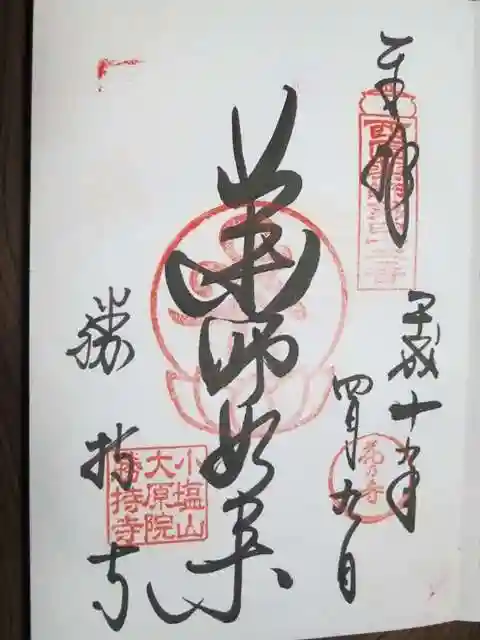 奉拝
平成十九年
四月九日
薬師如来
勝持寺
花乃寺
小塩山
大原院
勝持寺